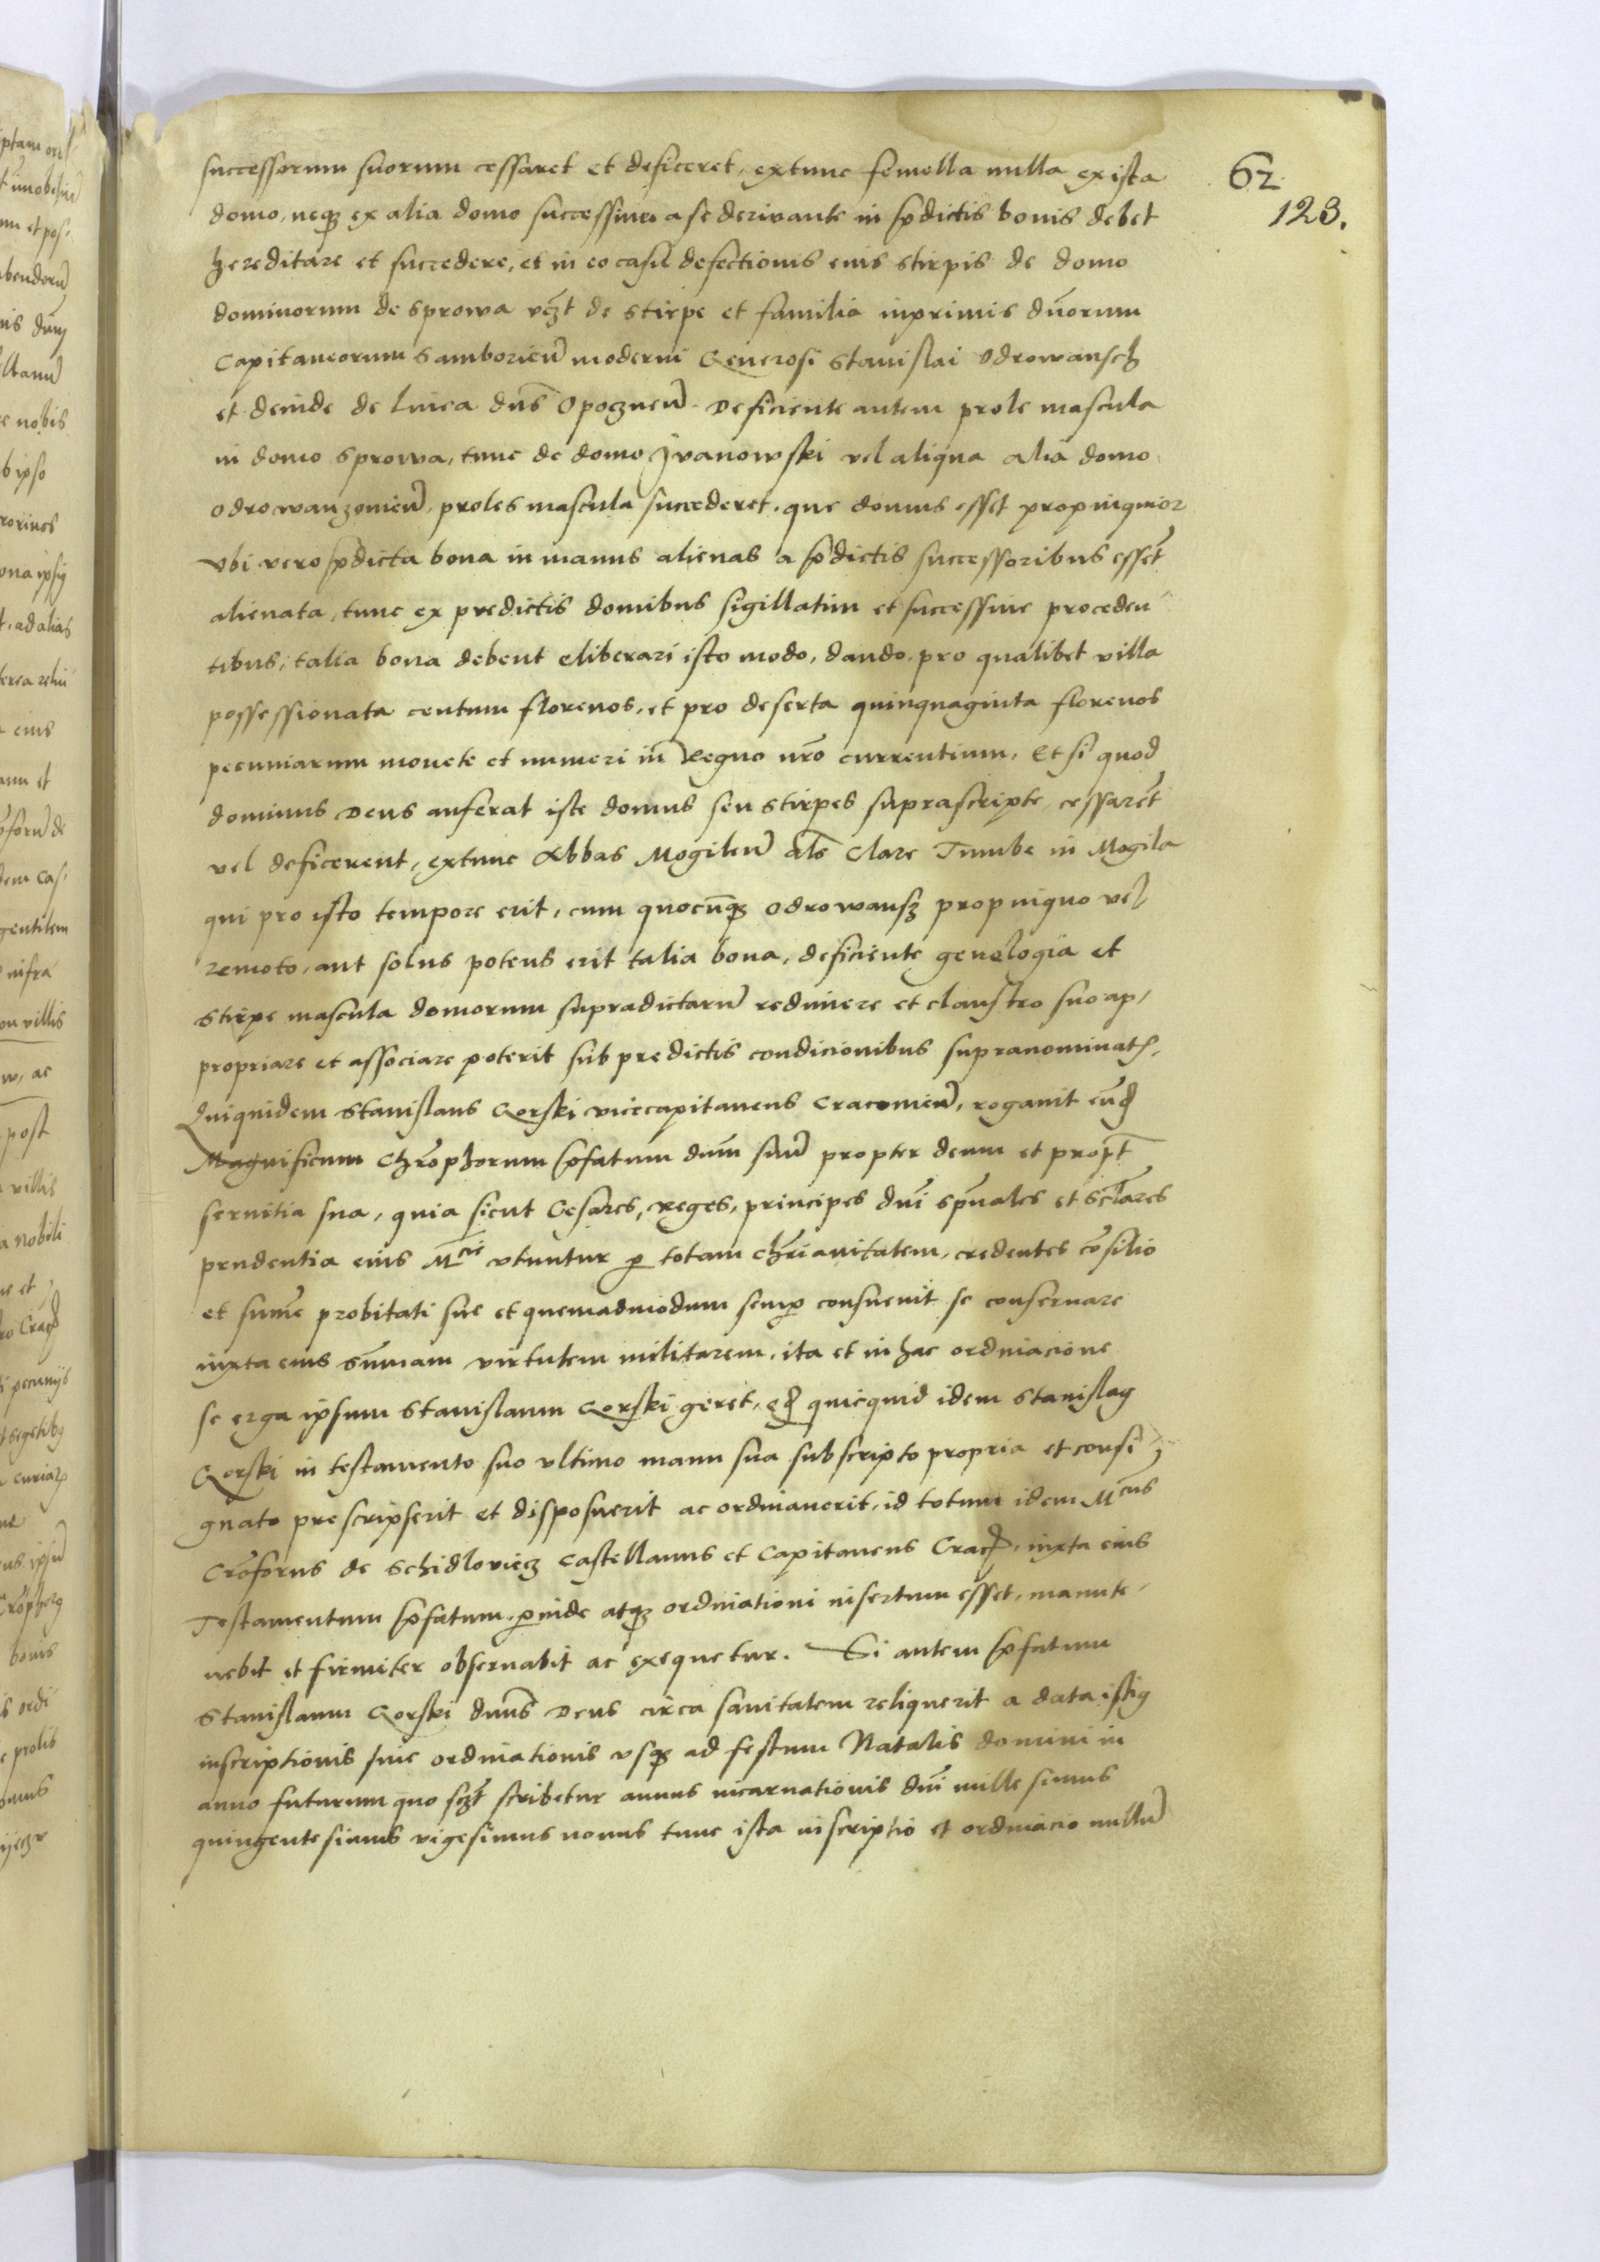 62
123.
successorum suorum cessaret et deficeret, extunc femella nulla ex ista
domo, neqȝ ex alia domo successiue a se deriuante in p̃dictis bonis debet
hereditare et succedere, et in eo casu defectionis eius stirpis de domo
dominorum de Sprowa vȝt de stirpe et familia inprimis dnõrum
Capitaneorum Samborieñ moderni Generosi Stanislai Odrowansch
et deinde de linea dñs Opoczneñ. Deficiente autem prole mascula
in domo Sprowa, tunc de domo Jvanowski vel aliqua alia domo
odrowanzonieñ, proles mascula succederet, que domus esset propinquior
Vbi vero p̃dicta bona in manus alienas a p̃dictis successoribus esseñt
alienata, tunc ex predictis domibus sigillatim et successiue proceden
tibus, talia bona debent eliberari isto modo, dando pro qualibet villa
possessionata centum florenos, et pro deserta quinquaginta florenos
pecuniarum monete et numeri in Regno nr̃o currentium. Et si quod
dominus Deus auferat iste domus seu stirpes suprascripte cessareñt
vel deficerent, extunc Abbas Mogileñ als̃ Clare Tumbe in Mogila
qui pro isto tempore erit, cum quocũqȝ odrowansȝ propinquo vel
remoto, aut solus potens erit talia bona, deficiente genelogia et
stirpe mascula domorum supradictarũ redimere et claustro suo ap,
propriare et associare poterit sub predictis condicionibus supranominatis,
Quiquidem Stanislaus Gorski vicecapitaneus Cracouieñ, rogauit eũd
Magnificum Chr̃ophorum p̃fatum dñm suũ propter deum et propt̃
seruitia sua, quia sicut Cesares, reges, principes dñi sp̃uales et sc̃lares
prudentia eius Mcie vtuntur p totam chr̃ianitatem, credentes cõsilio
et sum̃e probitati sue et quemadmodum semp consueuit se conseruare
iuxta eius sũmam virtutem militarem, ita et in hac ordinacione
se erga ipsum Stanislaum Gorski geret, qd quicquid idem Stanislaꝯ
Gorski in testamento suo vltimo manu sua subscripto propria et consi,
gnato prescripserit et disposuerit ac ordinauerit, id totum idem Mcus
Cr̃oforus de Schidloviecz Castellanus et Capitaneus Crac̃, iuxta eius
Testamentum p̃fatum, pinde atqȝ ordinationi insertum esset, manute,
nebit et firmiter obseruabit ac exequetur. Si autem p̃fatum
Stanislaum Gorski dñus Deus circa sanitatem reliquerit a data istiꝯ
inscriptionis siue ordinationis vsqȝ ad festum Natalis domini in
anno futurum quo scȝt scribetur annus incarnationis dñi millesimus
quingentesimus vigesimus nonus tunc ista inscriptio et ordinacio nullũ